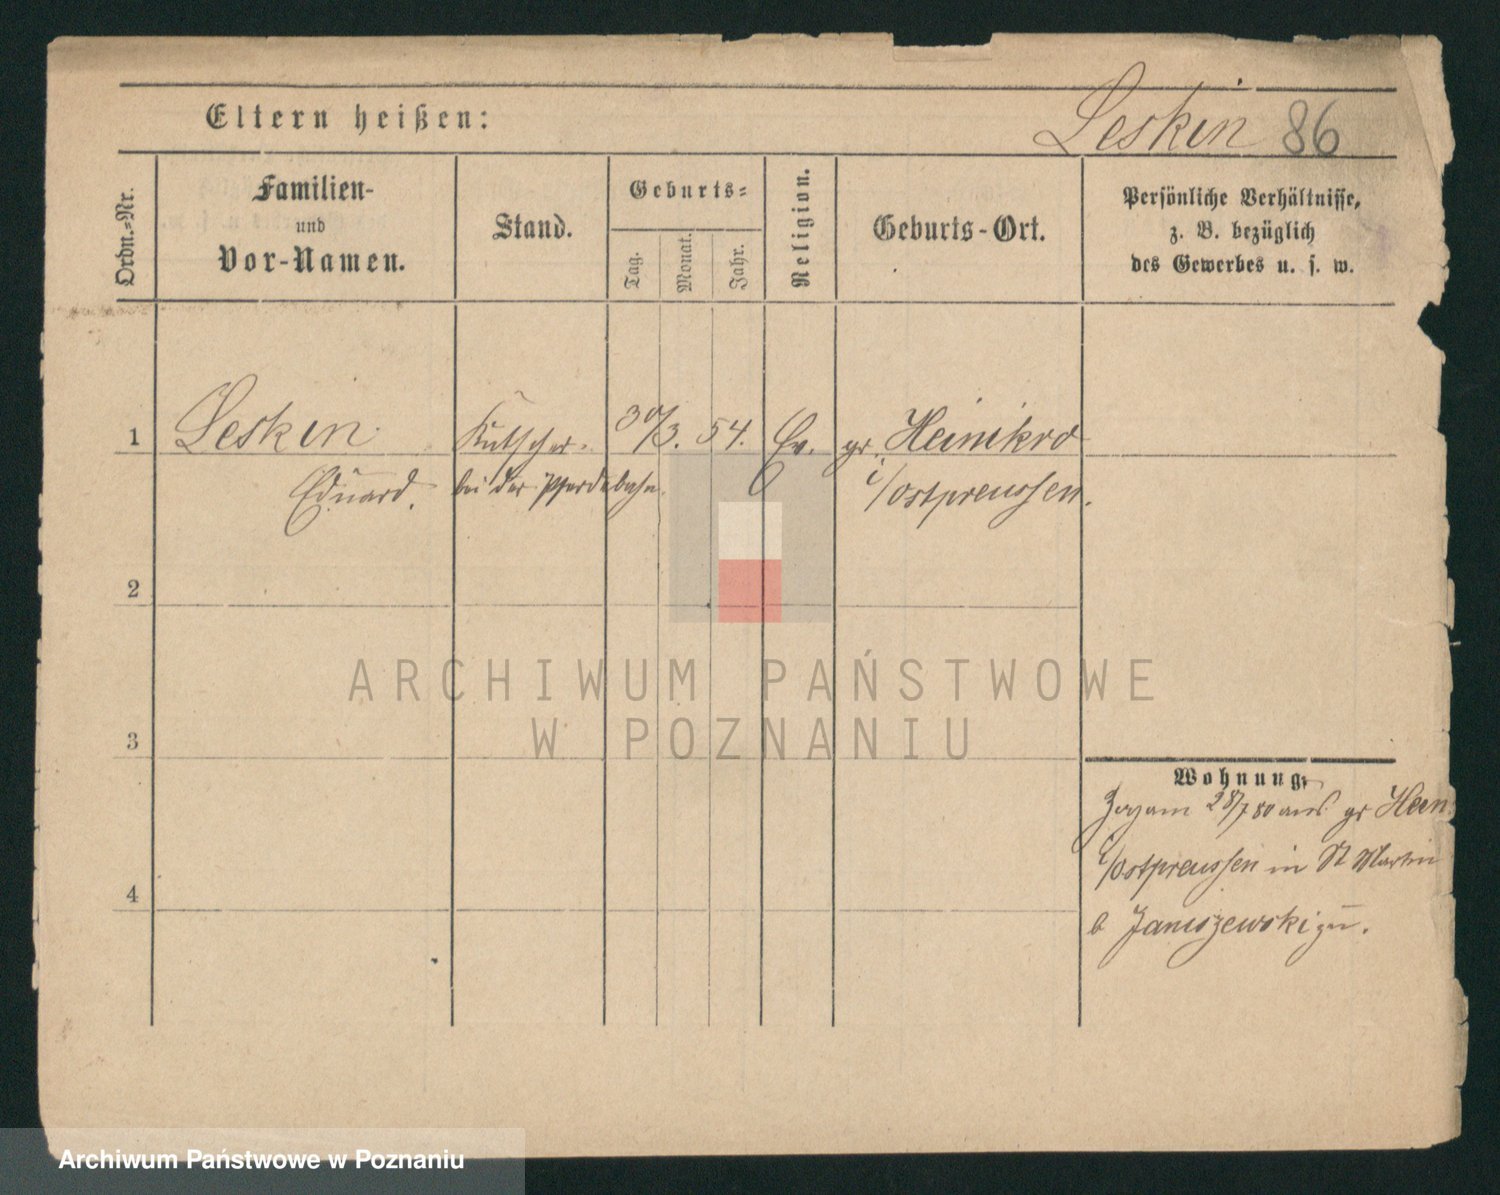 Eltern heißen:
Leskin 86
Ordn.-Nr.
Familien-
und
Vor-Namen.
Stand.
Geburts-
Tag.
Monat.
Jahr.
Religion.
Geburts-Ort.
Persönliche Verhältnisse,
z. B. bezüglich
des Gewerbes u. s. w.
1 Leskin Kutscher. 30/3. 54. Ev. gr. Heinikro
Eduard. bei der Pferdebahn. i/Ostpreussen.
2
3
4
Wohnung.
Zog am 28/7 80 aus gr Hein
i/Ostpreussen in St Martin
b Janiszewski zu.
ARCHIWUM PAŃSTWOWE
W POZNANIU
Archiwum Państwowe w Poznaniu